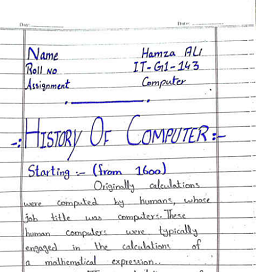 Day: Date:
Name Hamza ALi
Roll No IT-G1-143
Assignment Computer
-: HISTORY OF COMPUTER:-
Starting :- (from 1600)
Originally calculations
were computed by humans, whose
job title was computers. These
human computers were typically
engaged in the calculations of
a mathematical expression..